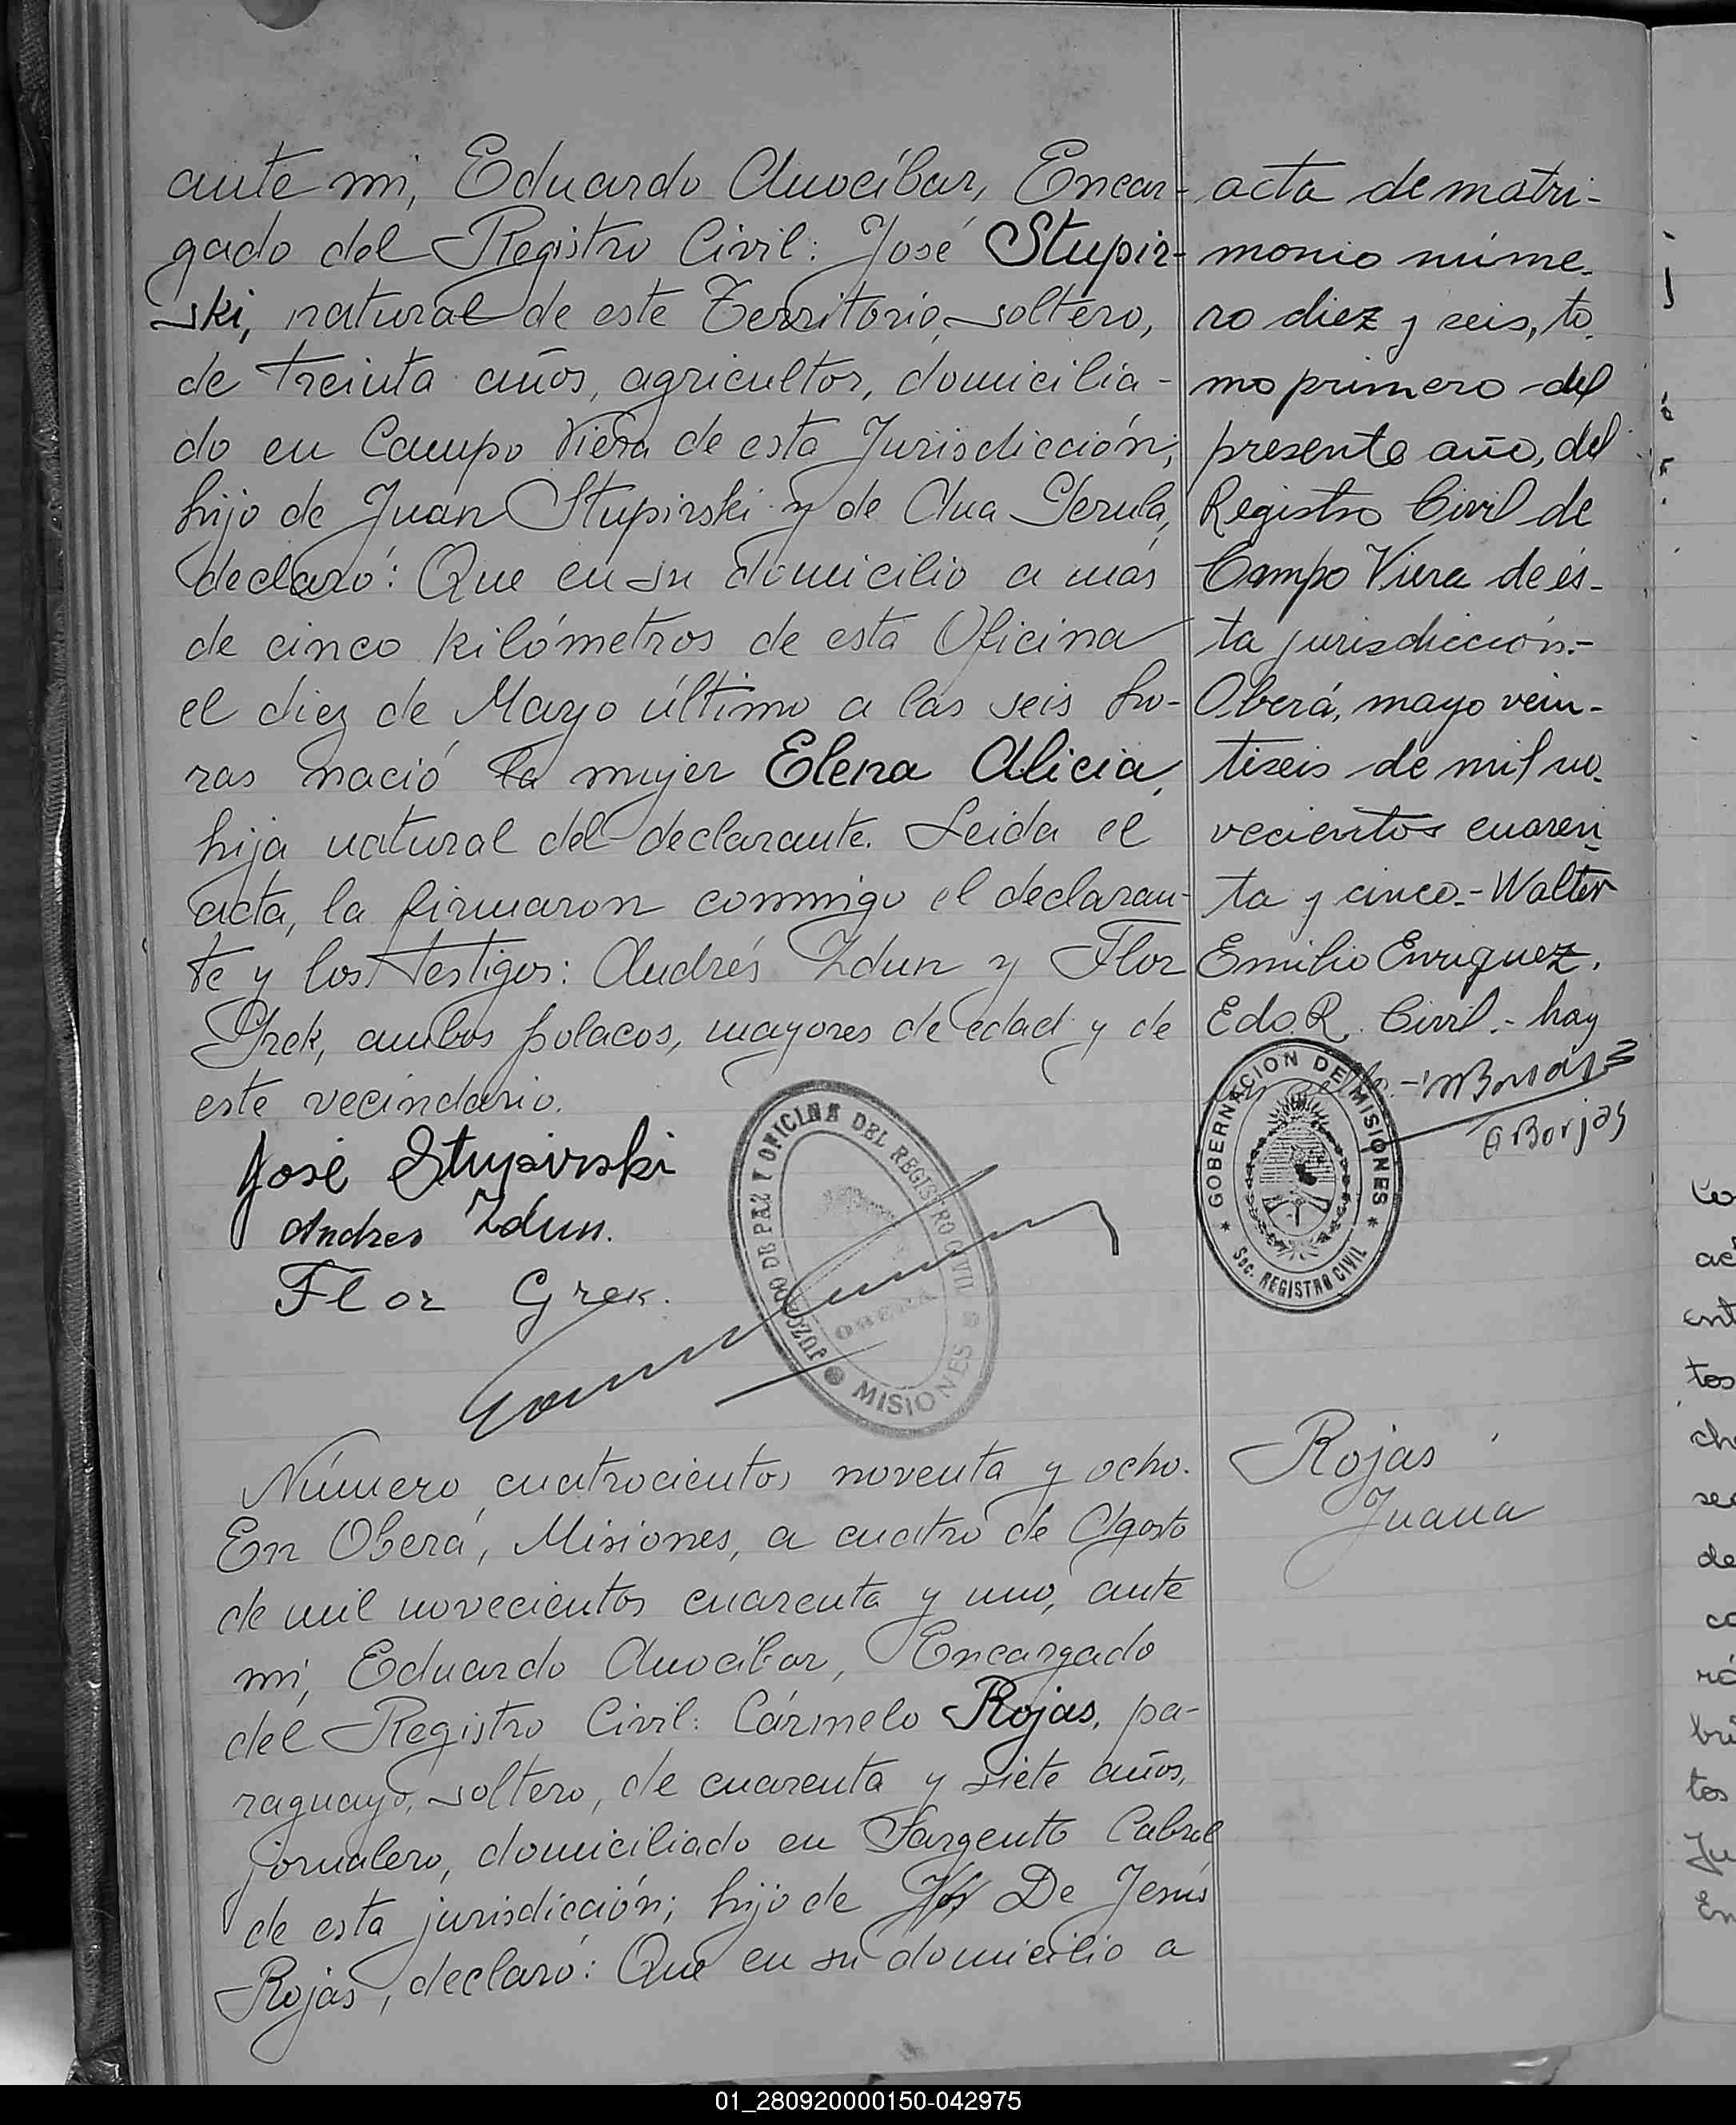 ante mi, Eduardo Anocíbar, Encar-
gado del Registro Civil: José Stupir-
ski, natural de este Territorio, soltero,
de treinta años, agricultor, domicilia-
do en Campo Viera de esta Jurisdicción;
hijo de Juan Stupirski y de Ana Gerula,
declaró: Que en su domicilio a más
de cinco kilómetros de esta Oficina
el diez de Mayo último a las seis ho-
ras nació la mujer Elena Alicia,
hija natural del declarante. Leida el
acta, la firmaron conmigo el declaran-
te y los testigos: Andrés Zdun y Flor
Grek, ambos polacos, mayores de edad y de
este vecindario.
José Stupirski
Andres Zdun.
Flor Grek.
JUZGADO DE PAZ Y OFICINA DEL REGISTRO CIVIL
OBERÁ
MISIONES
acta de matri-
monio núme-
ro diez y seis, to-
mo primero del
presente año, del
Registro Civil de
Campo Viera de és-
ta jurisdicción.-
Oberá, mayo vein-
tiseis de mil no-
vecientos cuaren-
ta y cinco.- Walter
Emilio Enriquez.
Edo. R. Civil.- hay
un sello.-
A Borjas
GOBERNACION DE MISIONES
Sec. REGISTRO CIVIL
Número cuatrocientos noventa y ocho.
En Oberá, Misiones, a cuatro de Agosto
de mil novecientos cuarenta y uno, ante
mi, Eduardo Anocíbar, Encargado
del Registro Civil: Cármelo Rojas, pa-
raguayo, soltero, de cuarenta y siete años,
jornalero, domiciliado en Sargento Cabral
de esta jurisdicción; hijo de De Jesús
Rojas, declaró: Que en su domicilio a
Rojas
Juana
01_280920000150-042975